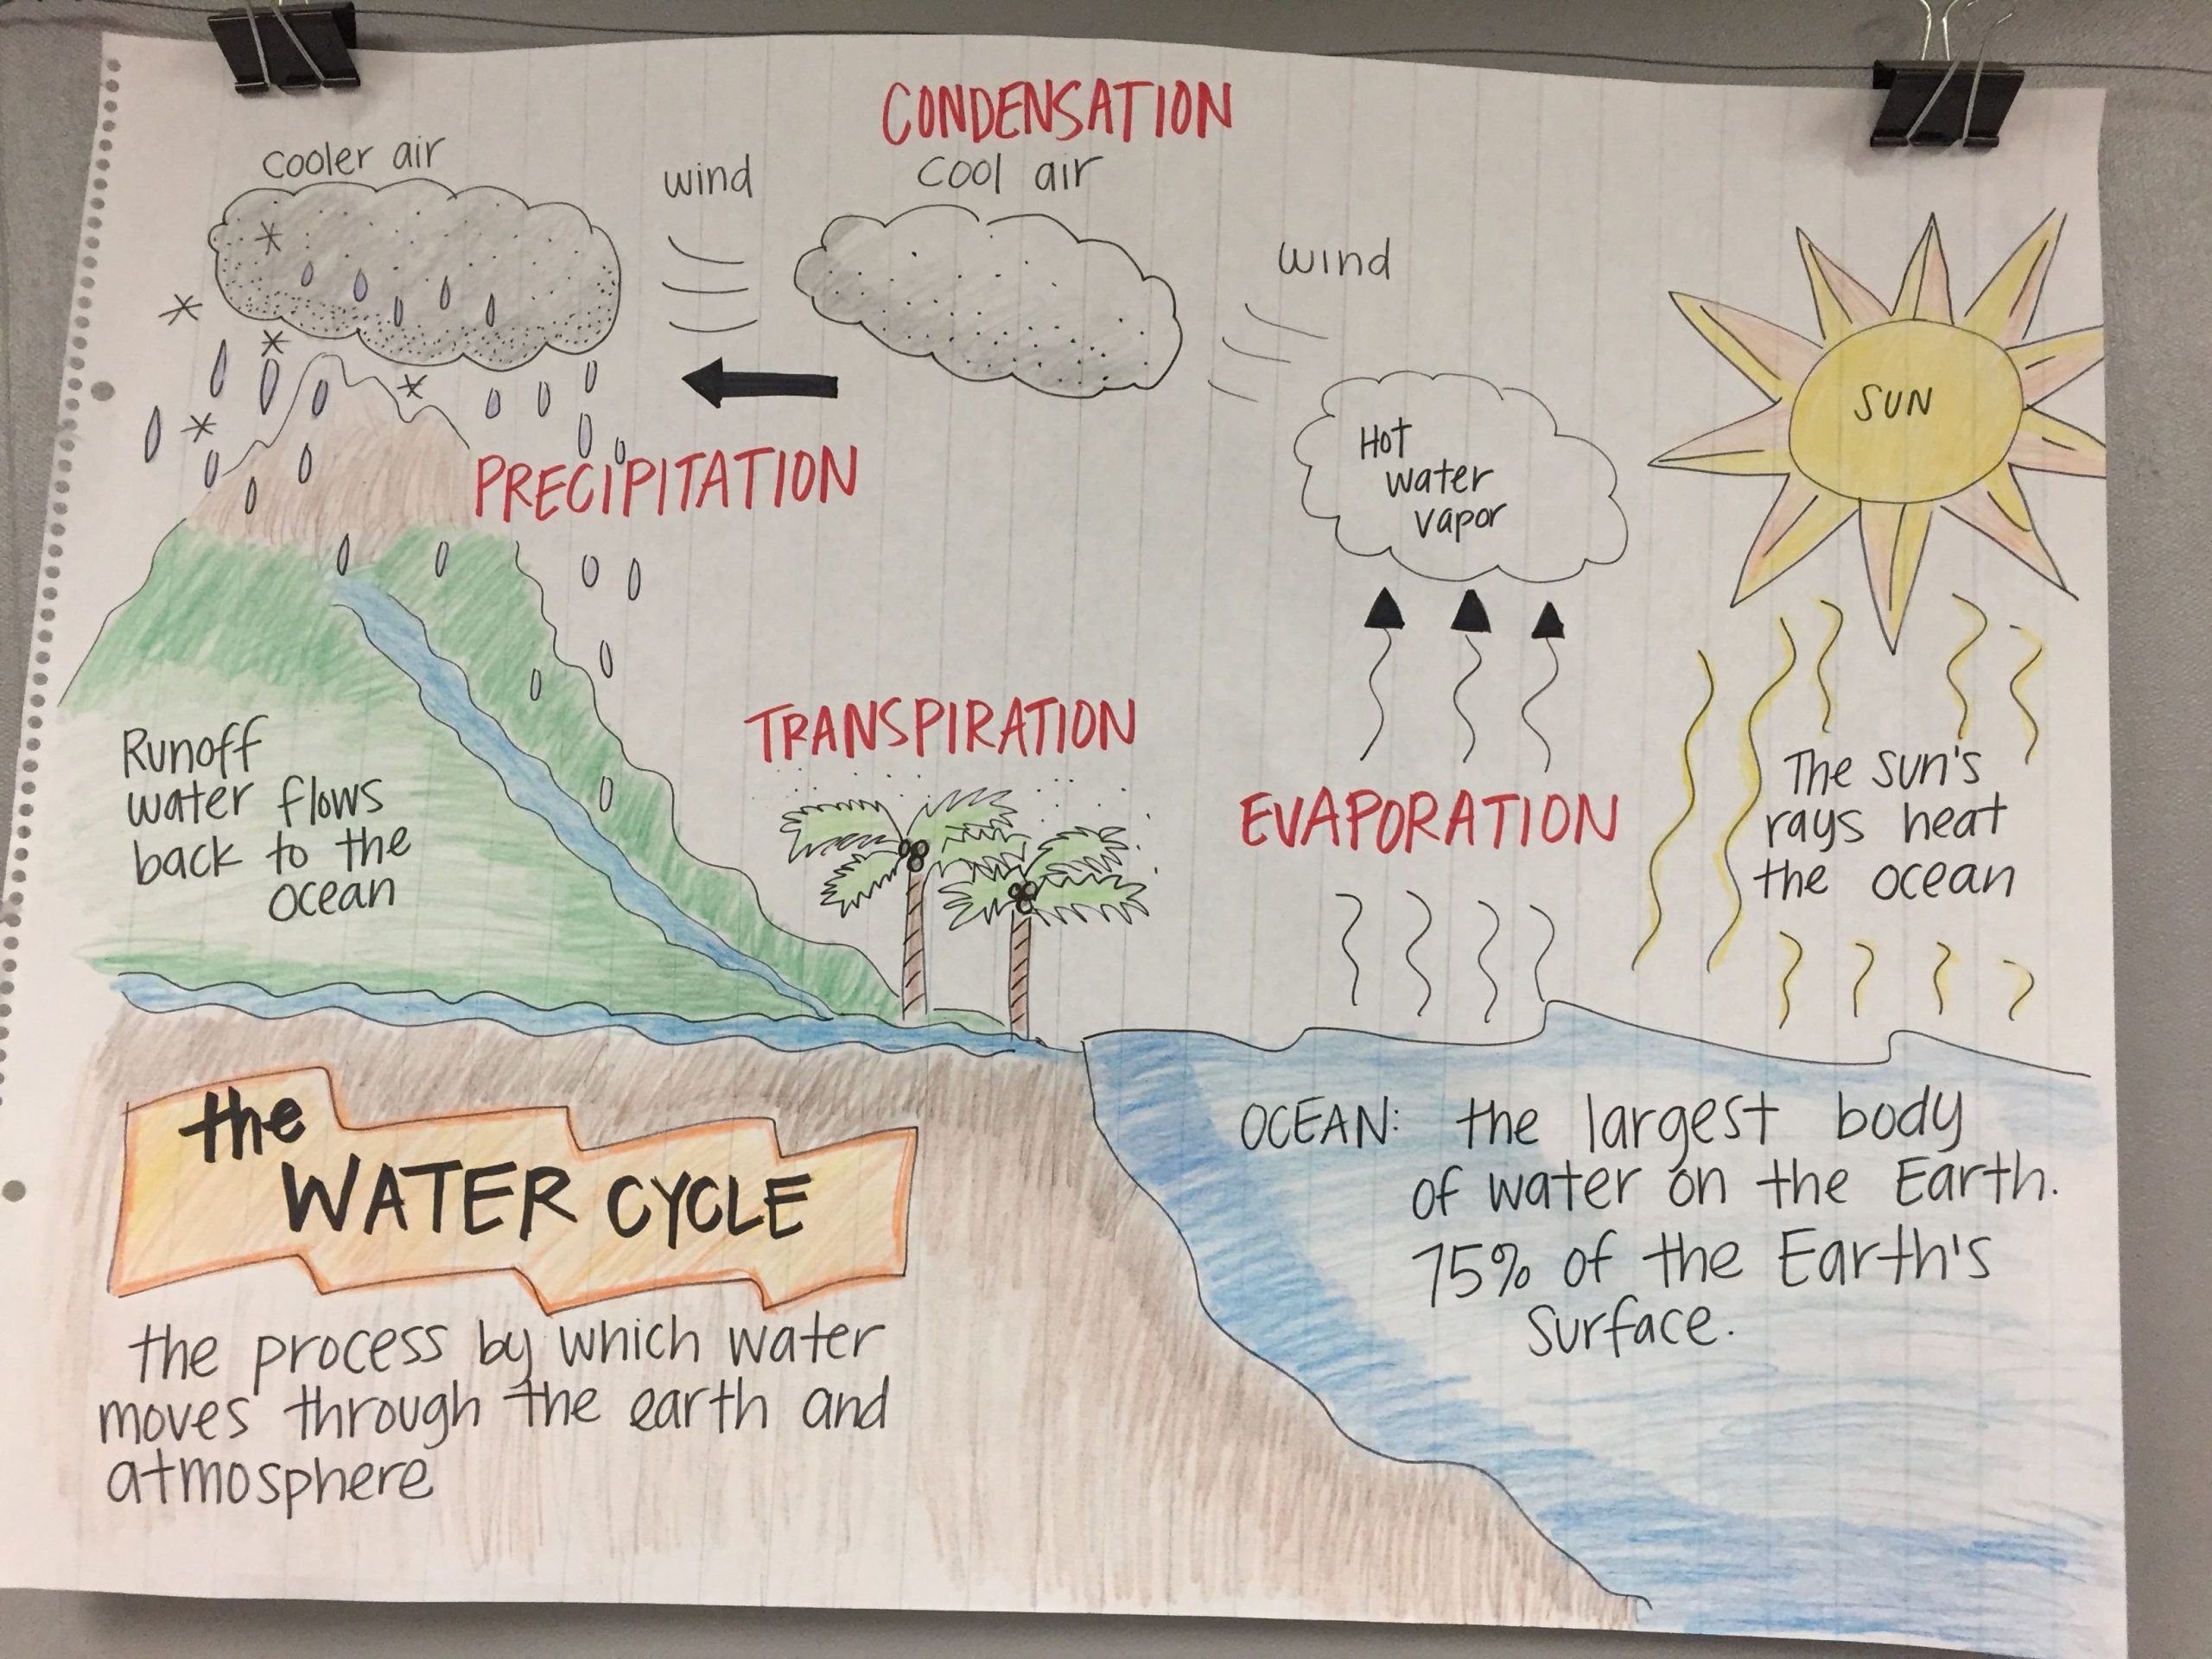 CONDENSATION
cooler air
wind
cool air
wind
SUN
Hot
water
vapor
PRECIPITATION
TRANSPIRATION
EVAPORATION
The sun's
rays heat
the ocean
Runoff
water flows
back to the
ocean
the
WATER CYCLE
the process by which water
moves through the earth and
atmosphere
OCEAN: the largest body
of water on the Earth.
75% of the Earth's
Surface.